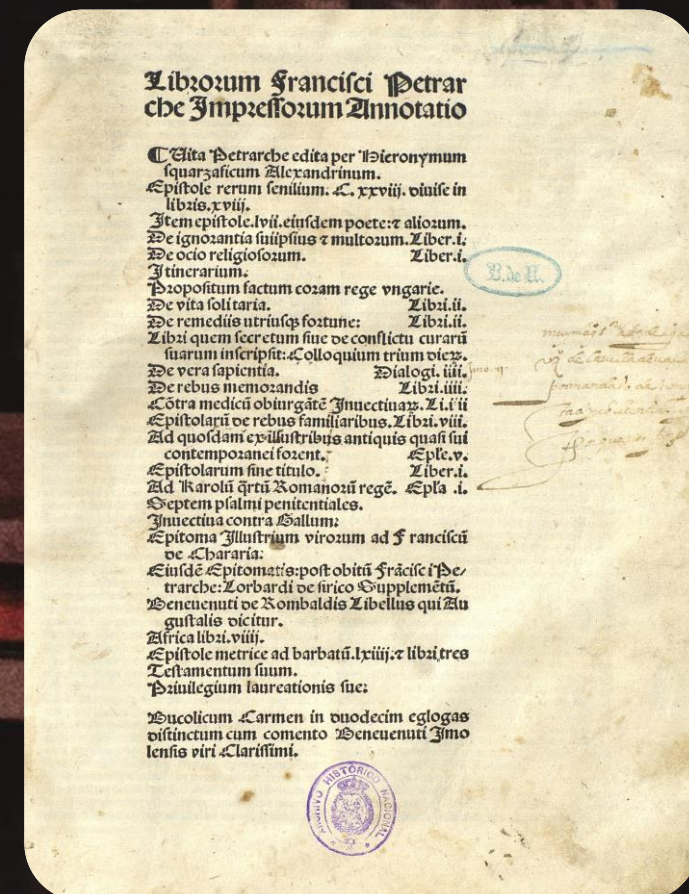 Librorum Francisci Petrar
che Impressorum Annotatio
¶ Uita Petrarche edita per Hieronymum
squarzaficum Alexandrinum.
Epistole rerum senilium. C. xxviij. diuise in
libris.xviij.
Item epistole.lvii.eiusdem poete:⁊ aliorum.
De ignorantia suiipsius ⁊ multorum. Liber.i.
De ocio religiosorum. Liber.i.
Itinerarium.
Propositum factum coram rege vngarie.
De vita solitaria. Libri.ii.
De remediis utriusqꝫ fortune: Libri.ii.
Libri quem secretum siue de conflictu curarũ
suarum inscripsit: Colloquium trium dierꝝ.
De vera sapientia. Dialogi. iii.
De rebus memorandis Libri.iiii.
Cõtra medicũ obiurgãtẽ Inuectiuaꝝ. Li.iiii
Epistolarũ de rebus familiaribus. Libri.viii.
Ad quosdam ex illustribus antiquis quasi sui
contemporanei forent. Eple.v.
Epistolarum sine titulo. Liber.i.
Ad Karolũ q̃rtũ Romanorũ regẽ. Epla .i.
Septem psalmi penitentiales.
Inuectiua contra Gallum:
Epitoma Illustrium virorum ad Franciscũ
de Chararia:
Eiusdẽ Epitomatis: post obitũ Frãcisci Pe-
trarche: Lorbardi de sirico Supplemẽtũ.
Beneuenuti de Rombaldis Libellus qui Au
gustalis dicitur.
Africa libri.viiij.
Epistole metrice ad barbatũ.lxiiij.⁊ libri tres
Testamentum suum.
Priuilegium laureationis sue:
Bucolicum Carmen in duodecim eglogas
distinctum cum comento Beneuenuti Imo
lensis viri Clarissimi.
B. de U.
ARCHIVO HISTÓRICO NACIONAL